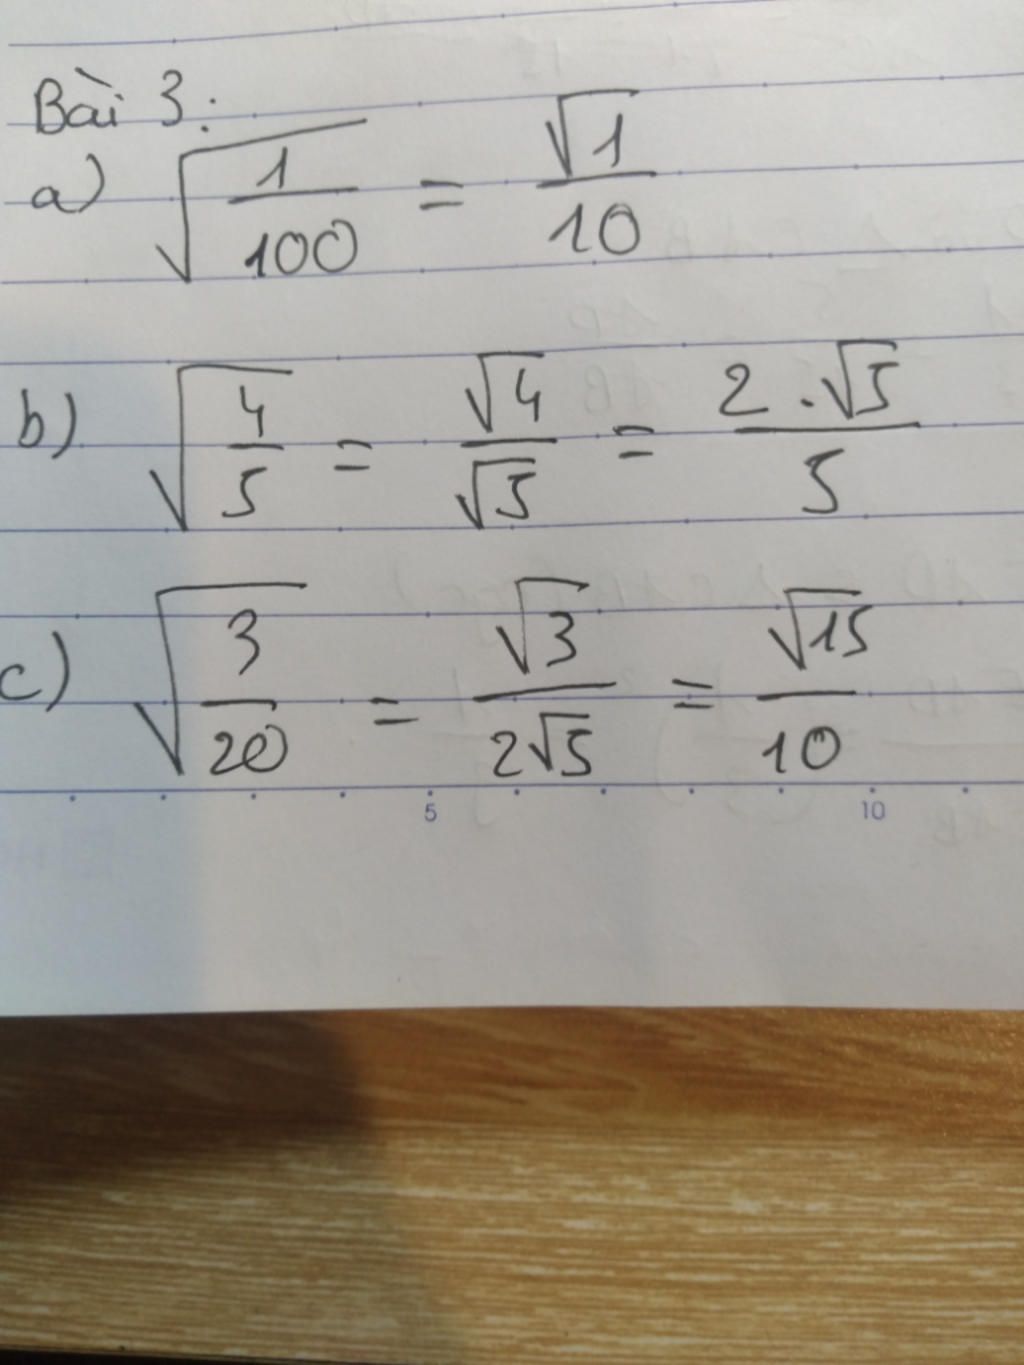 Bài 3:
a) √(1/100) = √1/10
b) √(4/5) = √4/√5 = 2.√5/5
c) √(3/20) = √3/2√5 = √15/10
5 10